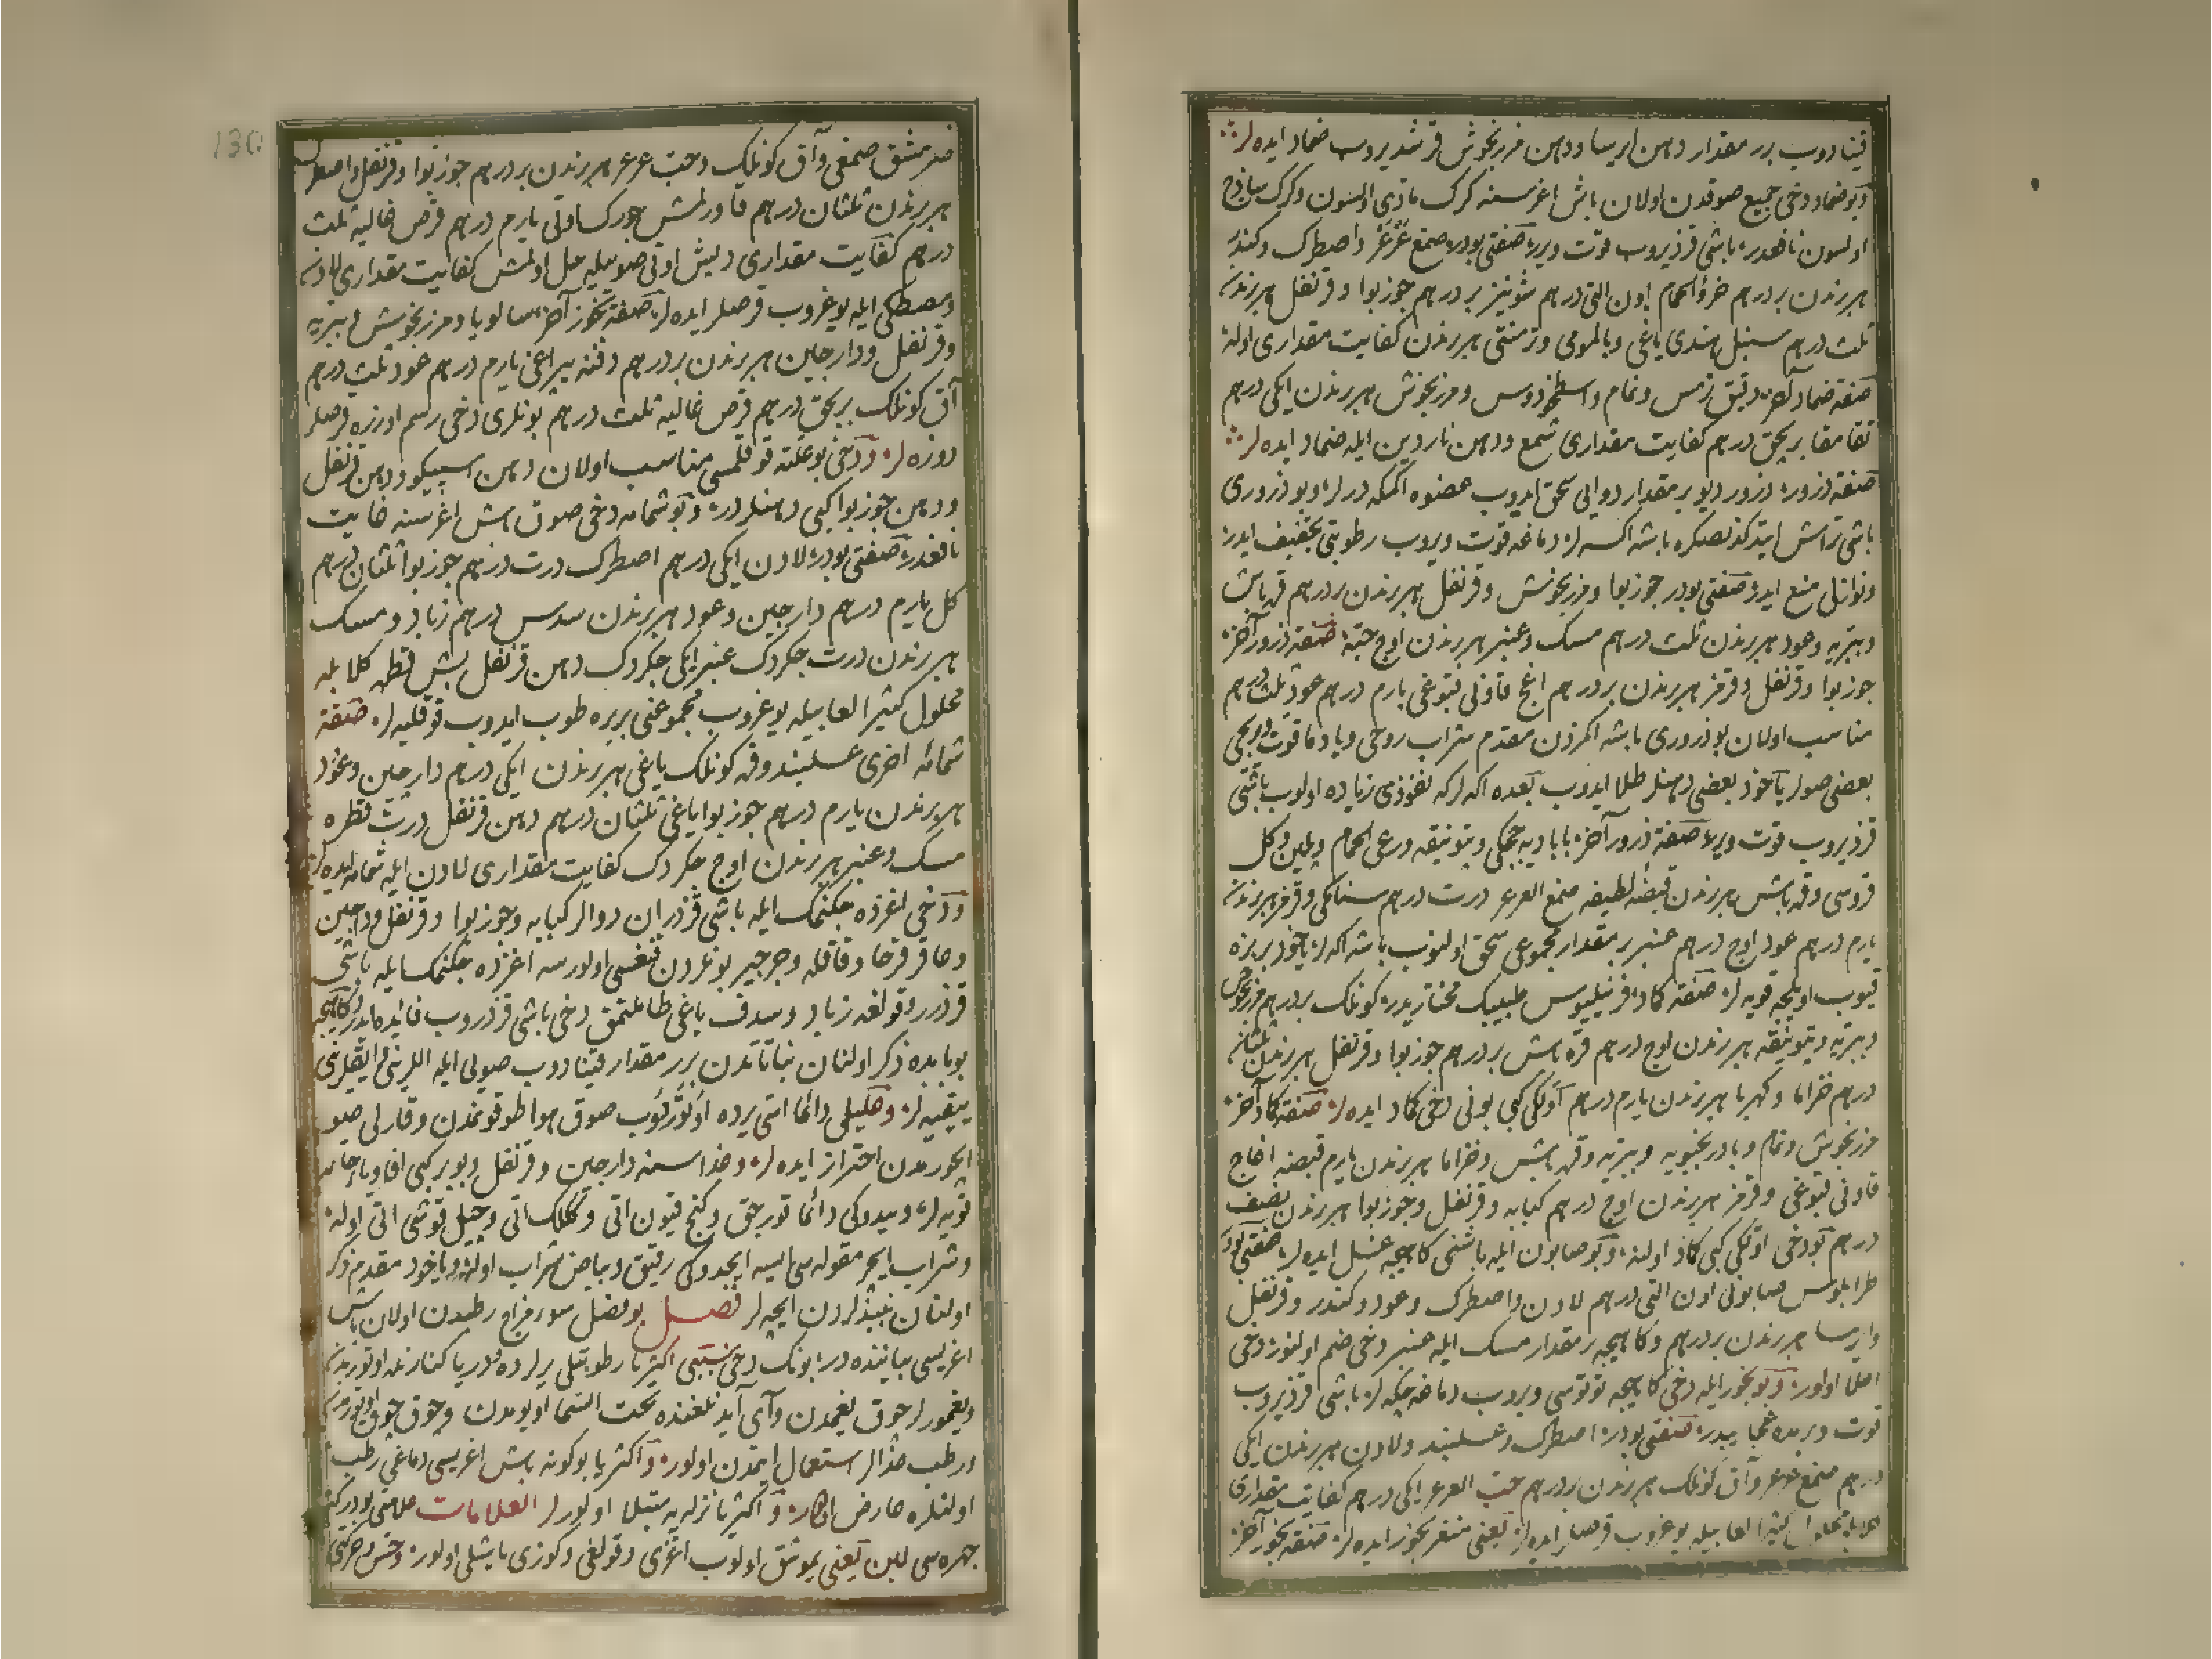 قینادوب برر مقدار دهن ایرسا ودهن مرزنجوش قرشدیروب ضماد ایده لر
وبو ضماد دخی جمیع صوقدن اولان باش اغرسنه کرک مادی اولسون وکرک ساذج
اولسون نافعدر باشی قزدیروب قوت ویرر صفتی بودر صمغ عرعر واصطرک وکندر
هر برندن بر درهم خرؤ الحمام اون التی درهم شونیز بر درهم جوز بوا وقرنفل هر برندن
ثلث درهم سنبل هندی یاغی وبالمومی وترمنتی هر برندن کفایت مقداری اوله
صفة ضماد آخر دقیق ترمس ونمام واسطوخودوس ومرزنجوش هر برندن ایکی درهم
تقامقا بر بچق درهم کفایت مقداری شمع ودهن ناردین ایله ضماد ایده لر
صفة ذرور ذرور دیو بر مقدار دوایی سحق ایدوب عضوه اکمکه درلر وبو ذروری
باشی تراش ایتدکدنصکره باشه اکسه لر دماغه قوت ویروب رطوبتی تجفیف ایدر
ونوازلی منع ایدر صفتی بودر جوز بوا ومرزنجوش وقرنفل هر برندن بر درهم قره باش
وبتریه وعود هر برندن ثلث درهم مسک وعنبر هر برندن اوچ حبه صفة ذرور آخر
جوز بوا وقرنفل وقرمز هر برندن بر درهم اغج قاونی یتوغی یارم درهم عود ثلث درهم
مناسب اولان بو ذروری باشه اکمزدن مقدم شراب روحی ویا دماقوت ویریجی
بعضی صولر یاخود بعضی دهنلر طلا ایدوب بعده اکه لر که نفوذی زیاده اولوب باشی
قزدیروب قوت ویره صفة ذرور آخر بابادیه چیچکی وبتونیقه ورعی الحمام وکل
قروسی وقره باش هر برندن قبضه لطیفه صمغ العرعر درت درهم سنامکی وقرمز هر برندن
یارم درهم عود اوچ درهم عنبر بر مقدار مجموعی سحق اولنوب باشه اکه لر یاخود بر بزه
قیوب اویلجه قویه لر صفة کماد فرنیلیوس طبیبک مختاریدر کونلک بر درهم مرزنجوش
وبتریه وبتونیقه هر برندن اوچ درهم قره باش بر درهم جوز بوا وقرنفل هر برندن ثلثان
درهم خزاما وکهربا هر برندن یارم درهم اولکی کبی بونی دخی کماد ایده لر صفة کماد آخر
مرزنجوش ونمام وبادرنجبویه وبتریه وقره باش وخزاما هر برندن یارم قبضه اغاج
قاونی یتوغی وقرمز هر برندن اوچ درهم کبابه وقرنفل وجوز بوا هر برندن نصف
درهم بو دخی اولکی کبی کماد اولنه وبو صابون ایله باشنی کاهیجه غسل ایده لر صفتی بودر
طرابلوس صابونی اون التی درهم لادن واصطرک وعود وکندر وقرنفل
وایرسا هر برندن بر درهم وکاهیجه بر مقدار مسک ایله عنبر دخی ضم اولنور دخی
اعلا اولور وبو بخور ایله دخی کاهیجه توتوسی ویروب دماغه چکه لر باشی قزدیروب
قوت ویرمده عجایبدر صفتی بودر اصطرک وعسلبند ولادن هر برندن ایکی
درهم صمغ عرعر وآق کونلک هر برندن بر درهم حب العرعر ایکی درهم کفایت مقداری
کثیرا لعابیله یوغروب قرصلر ایده لر یعنی متفرق بخور ایده لر صفة بخور آخر
صمغی وآق کونلک وحب عرعر هر برندن بر درهم جوز بوا وقرنفل واصطرک
هر برندن ثلثان درهم قاورلمش چورک اوتی یارم درهم قرص غالیه ثلث
درهم کفایت مقداری دیش اوتی صوییله حل اولمش کفایت مقداری لادن
ومصطکی ایله یوغروب قرصلر ایده لر صفة بخور آخر سالویا ومرزنجوش وبتریه
وقرنفل ودارچین هر برندن بر درهم دفنه یپراغی یارم درهم عود ثلث درهم
آق کونلک بر بچق درهم قرص غالیه ثلث درهم بونلری دخی رسم اوزره قرصلر
دوزه لر ودخی بو علته قوقلمسی مناسب اولان دهن اسپیکو ودهن قرنفل
ودهن جوز بوا کبی دهنلردر وبو شمامه دخی صوق باش اغرسنه غایت
نافعدر صفتی بودر لادن ایکی درهم اصطرک درت درهم جوز بوا ثلثان درهم
کل یارم درهم دارچین وعود هر برندن سدس درهم زباد ومسک
هر برندن درت چکردک عنبر ایکی چکردک دهن قرنفل بش قطره کلابله
محلول کثیرا لعابیله یوغروب مجموعنی بریره طوپ ایدوب قوقلیه لر صفة
شمامه اخری عسلبند وقره کونلک یاغی هر برندن ایکی درهم دارچین وعود
هر برندن یارم درهم جوز بوا یاغی ثلثان درهم دهن قرنفل درت قطره
مسک وعنبر هر برندن اوچ چکردک کفایت مقداری لادن ایله شمامه ایده لر
ودخی اغزده چکنمک ایله باشی قزدیران دوالر کبابه وجوز بوا وقرنفل ودارچین
وعاقرقرحا وقاقله وجرجیر بونلردن قنغسی اولورسه اغزده چکنمک ایله باشی
قزدرر وقولغه زباد وسدف یاغی طاملتمق دخی باشی قزدروب فائده ایدر وکاهیجه
بو بابده ذکر اولنان نباتاتدن برر مقدار قینادوب صویی ایله اللرینی وایقلرینی
ییقیه لر وعلیلی دائما اسی یرده اوتورتوب صوق هوا طوقونمدن وقارلی صو
ایچورمدن احتراز ایده لر وغذاسنه دارچین وقرنفل وبوبر کبی افاویه حاره
قویه لر ویدوکی دائما قورجق وکنج قیون اتی وککلک اتی وجبل قوشی اتی اوله
وشراب ایچر مقوله سی ایسه ایچدوکی رقیق وبیاض شراب اوله ویاخود مقدم ذکر
اولنان نبیذلردن ایچه لر فصل بو فصل سوء مزاج رطبدن اولان باش
اغریسی بیاننده در بونک دخی سببی اکثریا رطوبتلی یرلرده ودریا کنارنده اوتورمدن
ویغمورلر چوق یغمدن وآی آیدنلغنده تحت السما اویومدن وچوق چوق اوتورمدن
ورطب غذالر استعمال ایتمدن اولور واکثریا بو کونه باش اغریسی دماغی رطب
اولنلره عارض اولور واکثریا نزله یه مبتلا اولورلر العلامات علامتی بودر که
چهره سی لین یعنی یومشق اولوب اغزی وقولغی وکوزی یاشلی اولور وحس وحرکتی